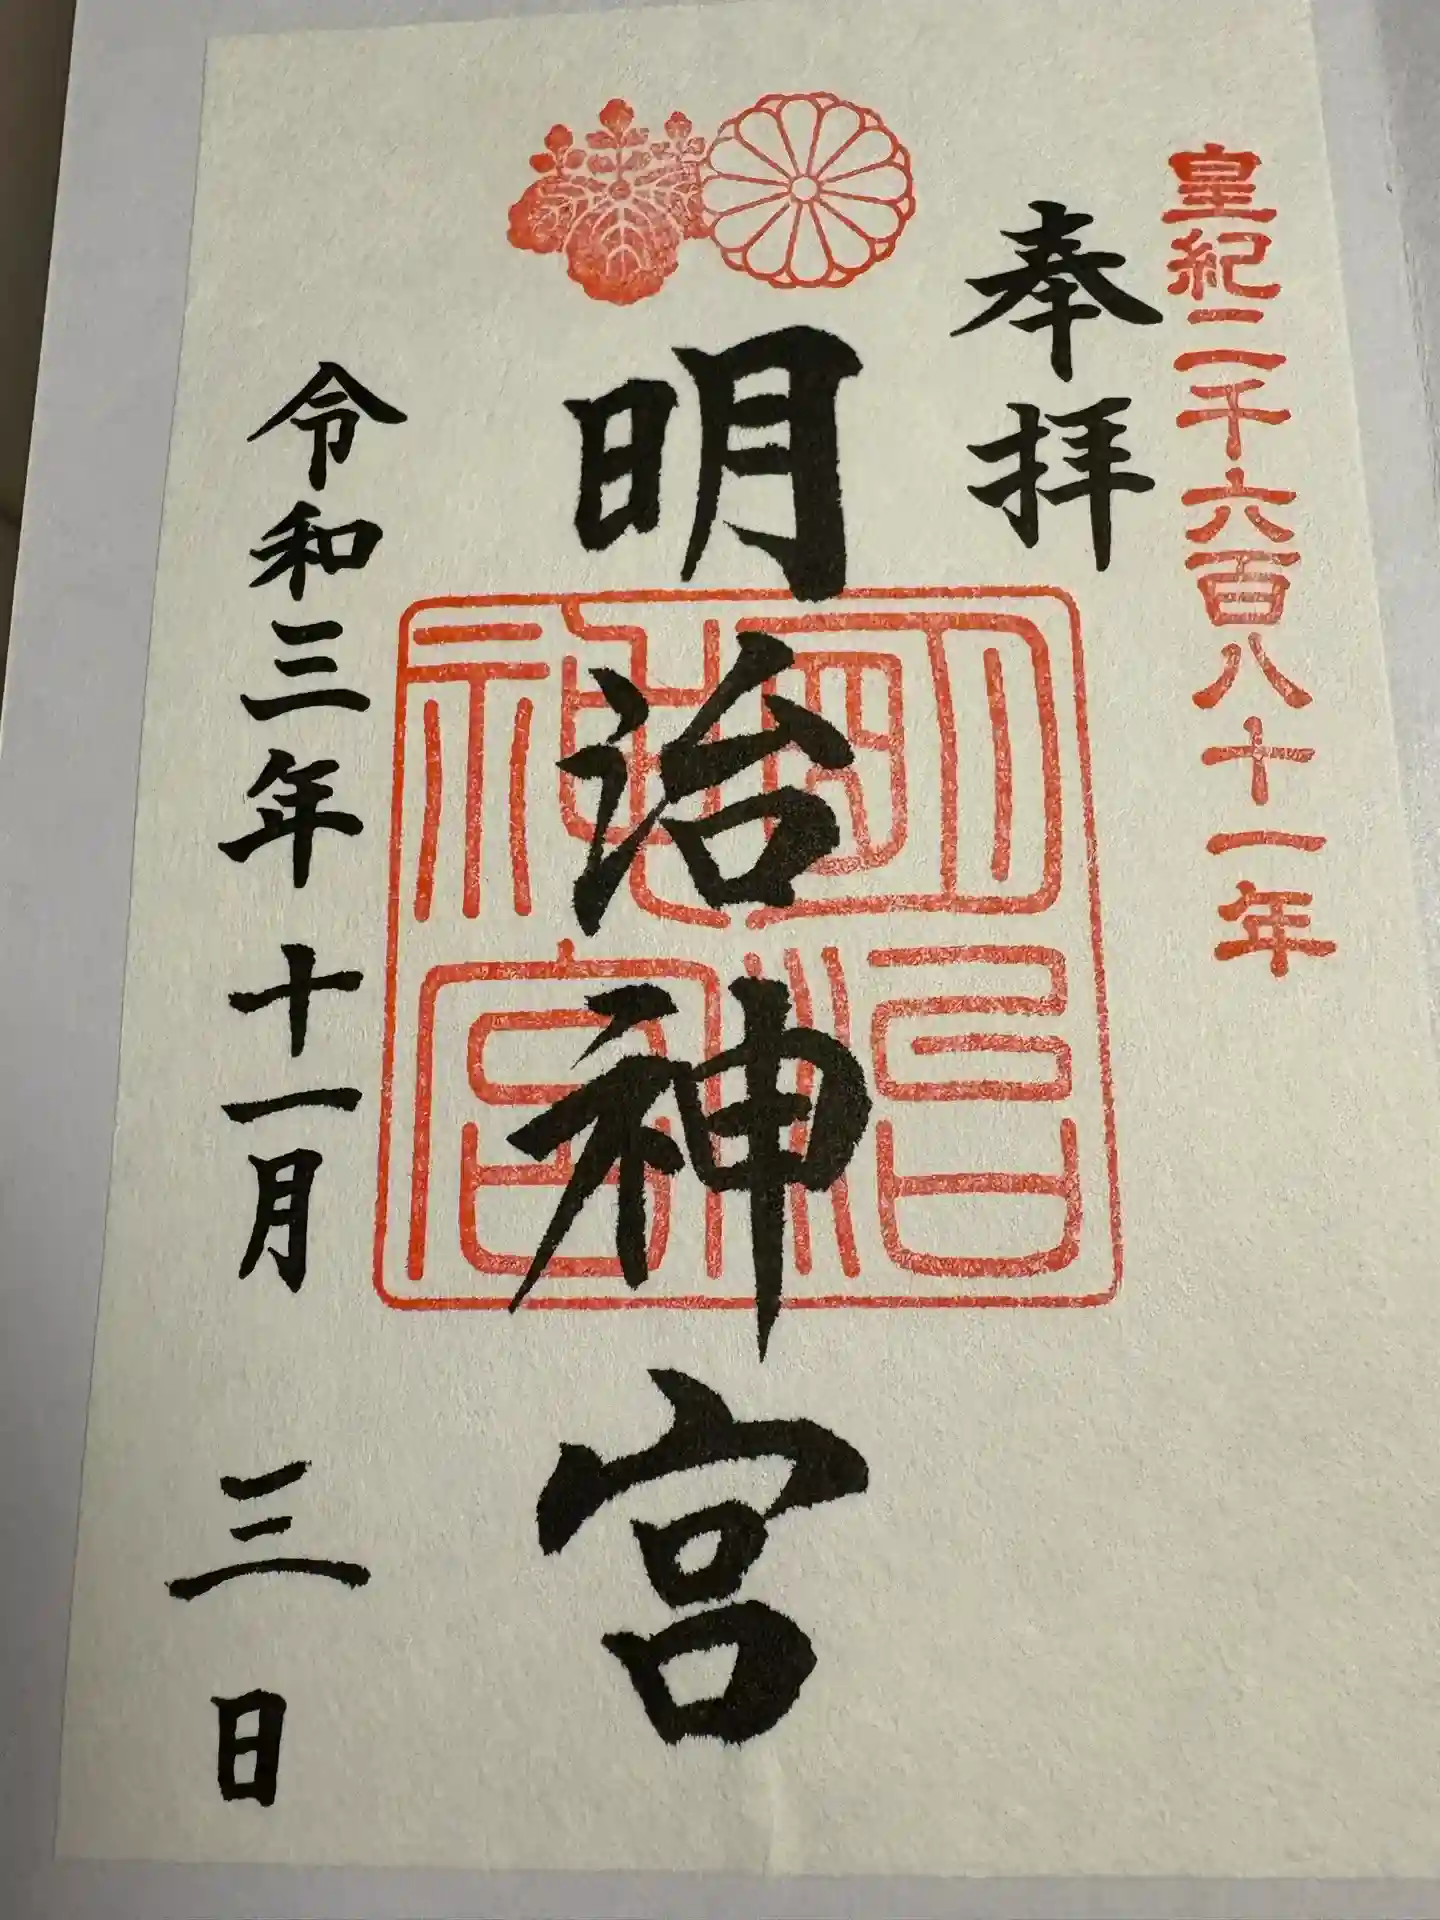 皇紀二千六百八十一年
奉拝
明治神宮
明治神宮
令和三年十一月三日